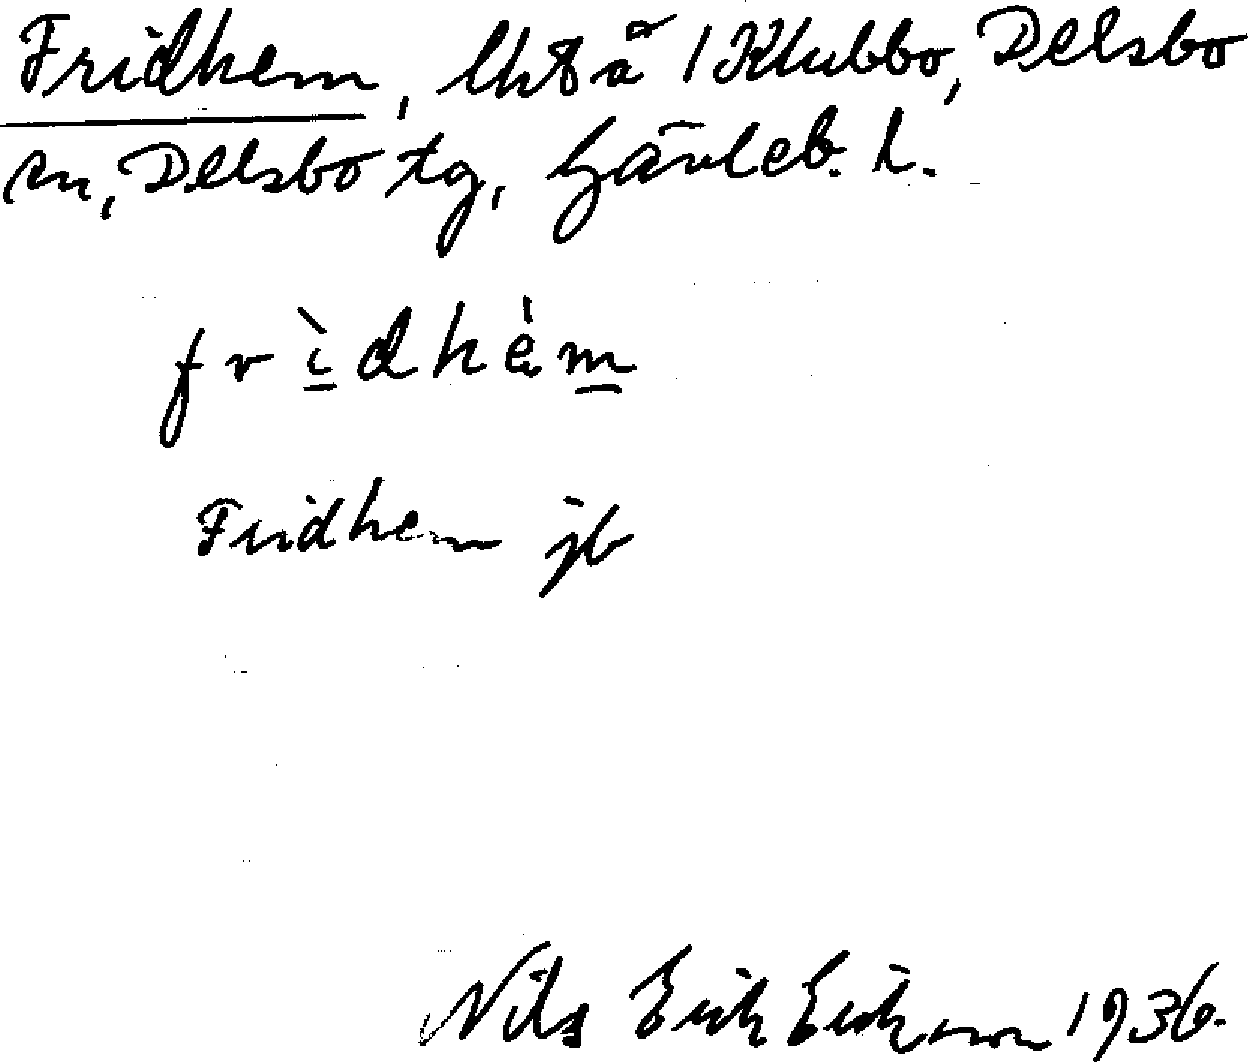 Fridhem, lht å 1 Klubbo, Delsbo
sn, Delsbo tg, Gävleb. l.
frìdhèm
Fridhem jb
Nils Erik Erikson 1936.